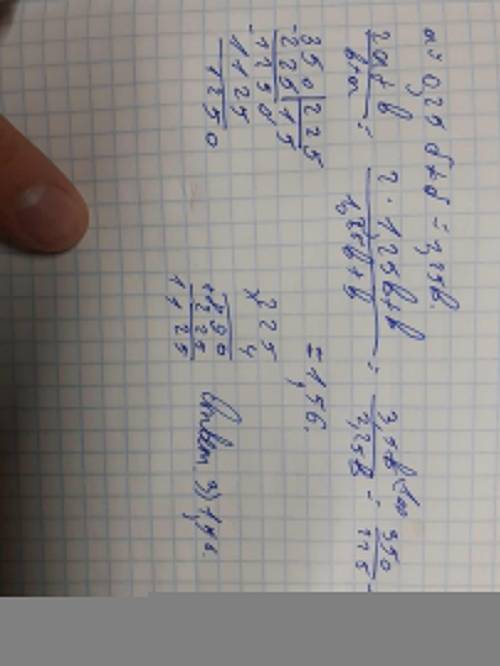 a = 0,25 b + b = 1,25b.
2a + b / b + a = 2 · 1,25b + b / 1,25b + b = 3,5b / 2,25b = 350 / 225
= 1,56.
350 225
- 225 1 5
- 1250
1125
1250
225
× 4
900
+ 225
1125
Ответ. 3) 1,56.